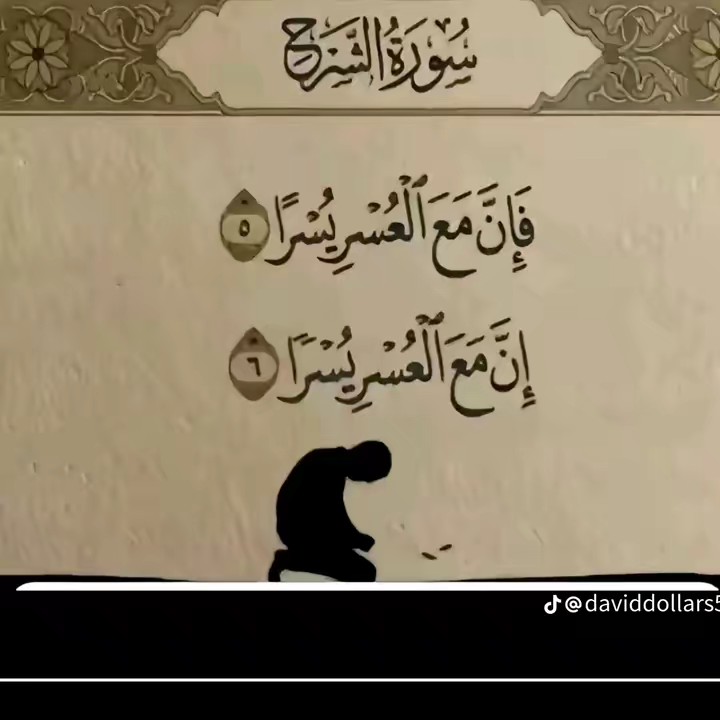 سُورَةُ الشَّرْحِ
فَإِنَّ مَعَ ٱلْعُسْرِ يُسْرًا ٥
إِنَّ مَعَ ٱلْعُسْرِ يُسْرًا ٦
@daviddollars5